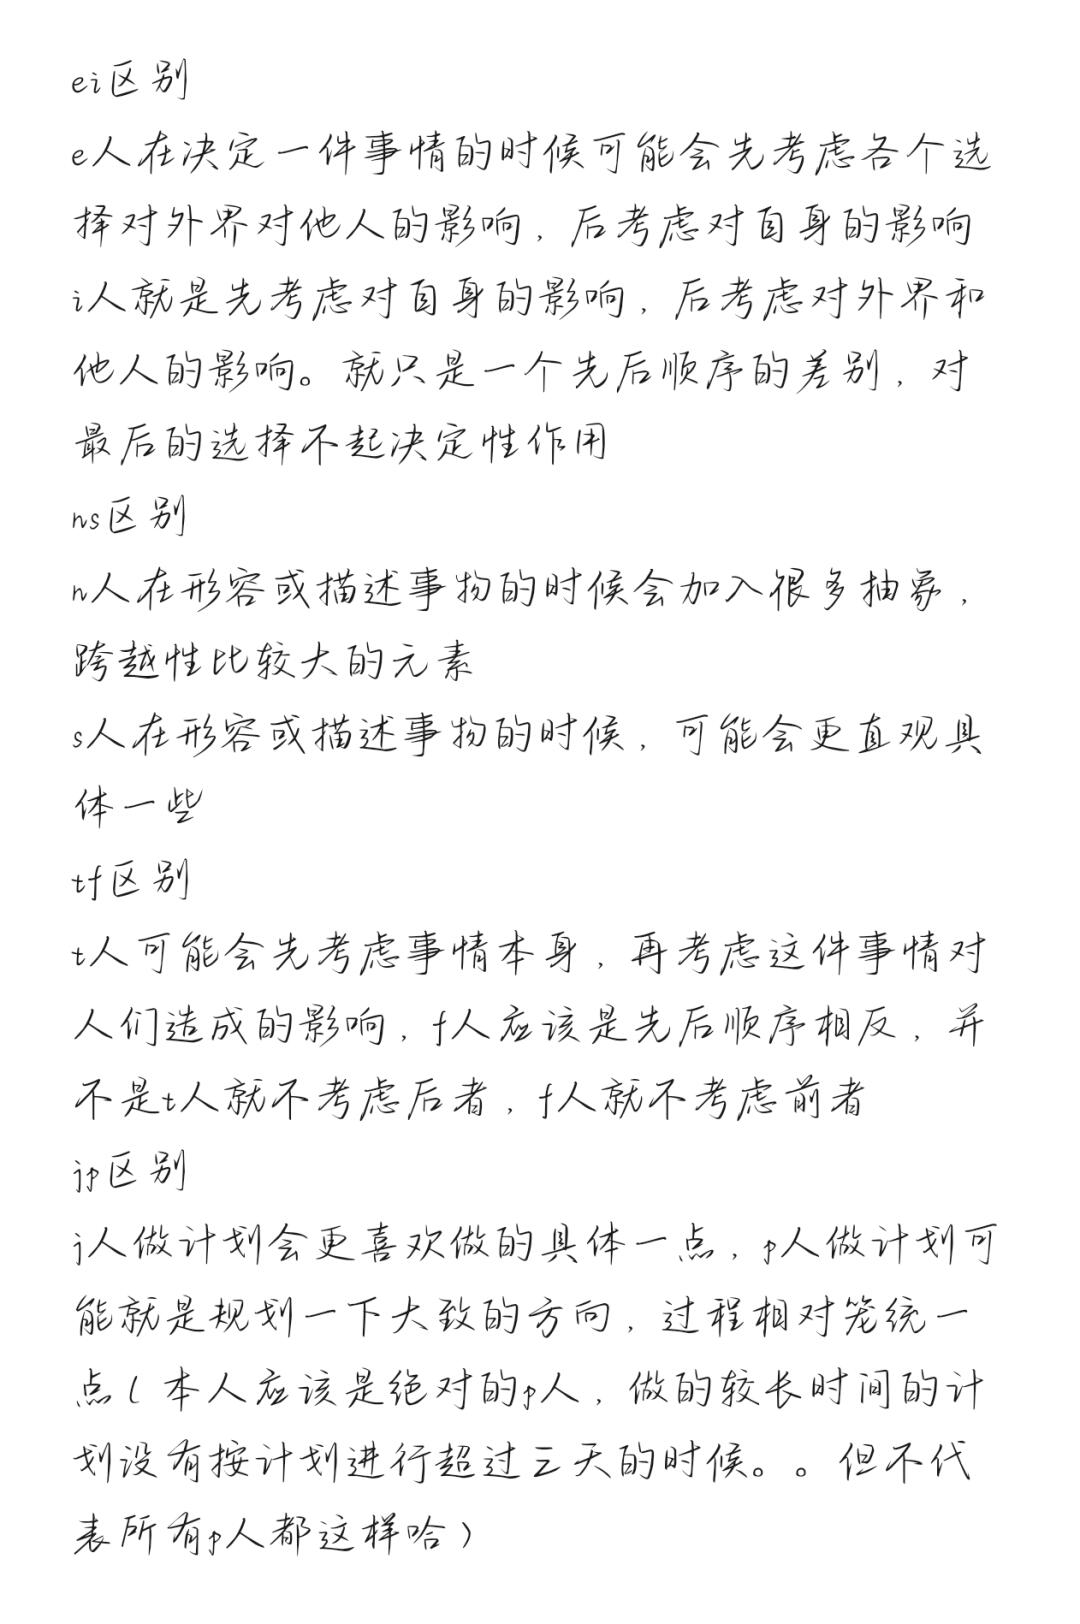 ei区别
e人在决定一件事情的时候可能会先考虑各个选
择对外界对他人的影响，后考虑对自身的影响
i人就是先考虑对自身的影响，后考虑对外界和
他人的影响。就只是一个先后顺序的差别，对
最后的选择不起决定性作用
ns区别
n人在形容或描述事物的时候会加入很多抽象，
跨越性比较大的元素
s人在形容或描述事物的时候，可能会更直观具
体一些
tf区别
t人可能会先考虑事情本身，再考虑这件事情对
人们造成的影响，f人应该是先后顺序相反，并
不是t人就不考虑后者，f人就不考虑前者
jp区别
j人做计划会更喜欢做的具体一点，p人做计划可
能就是规划一下大致的方向，过程相对笼统一
点（本人应该是绝对的p人，做的较长时间的计
划没有按计划进行超过三天的时候。。但不代
表所有p人都这样哈）